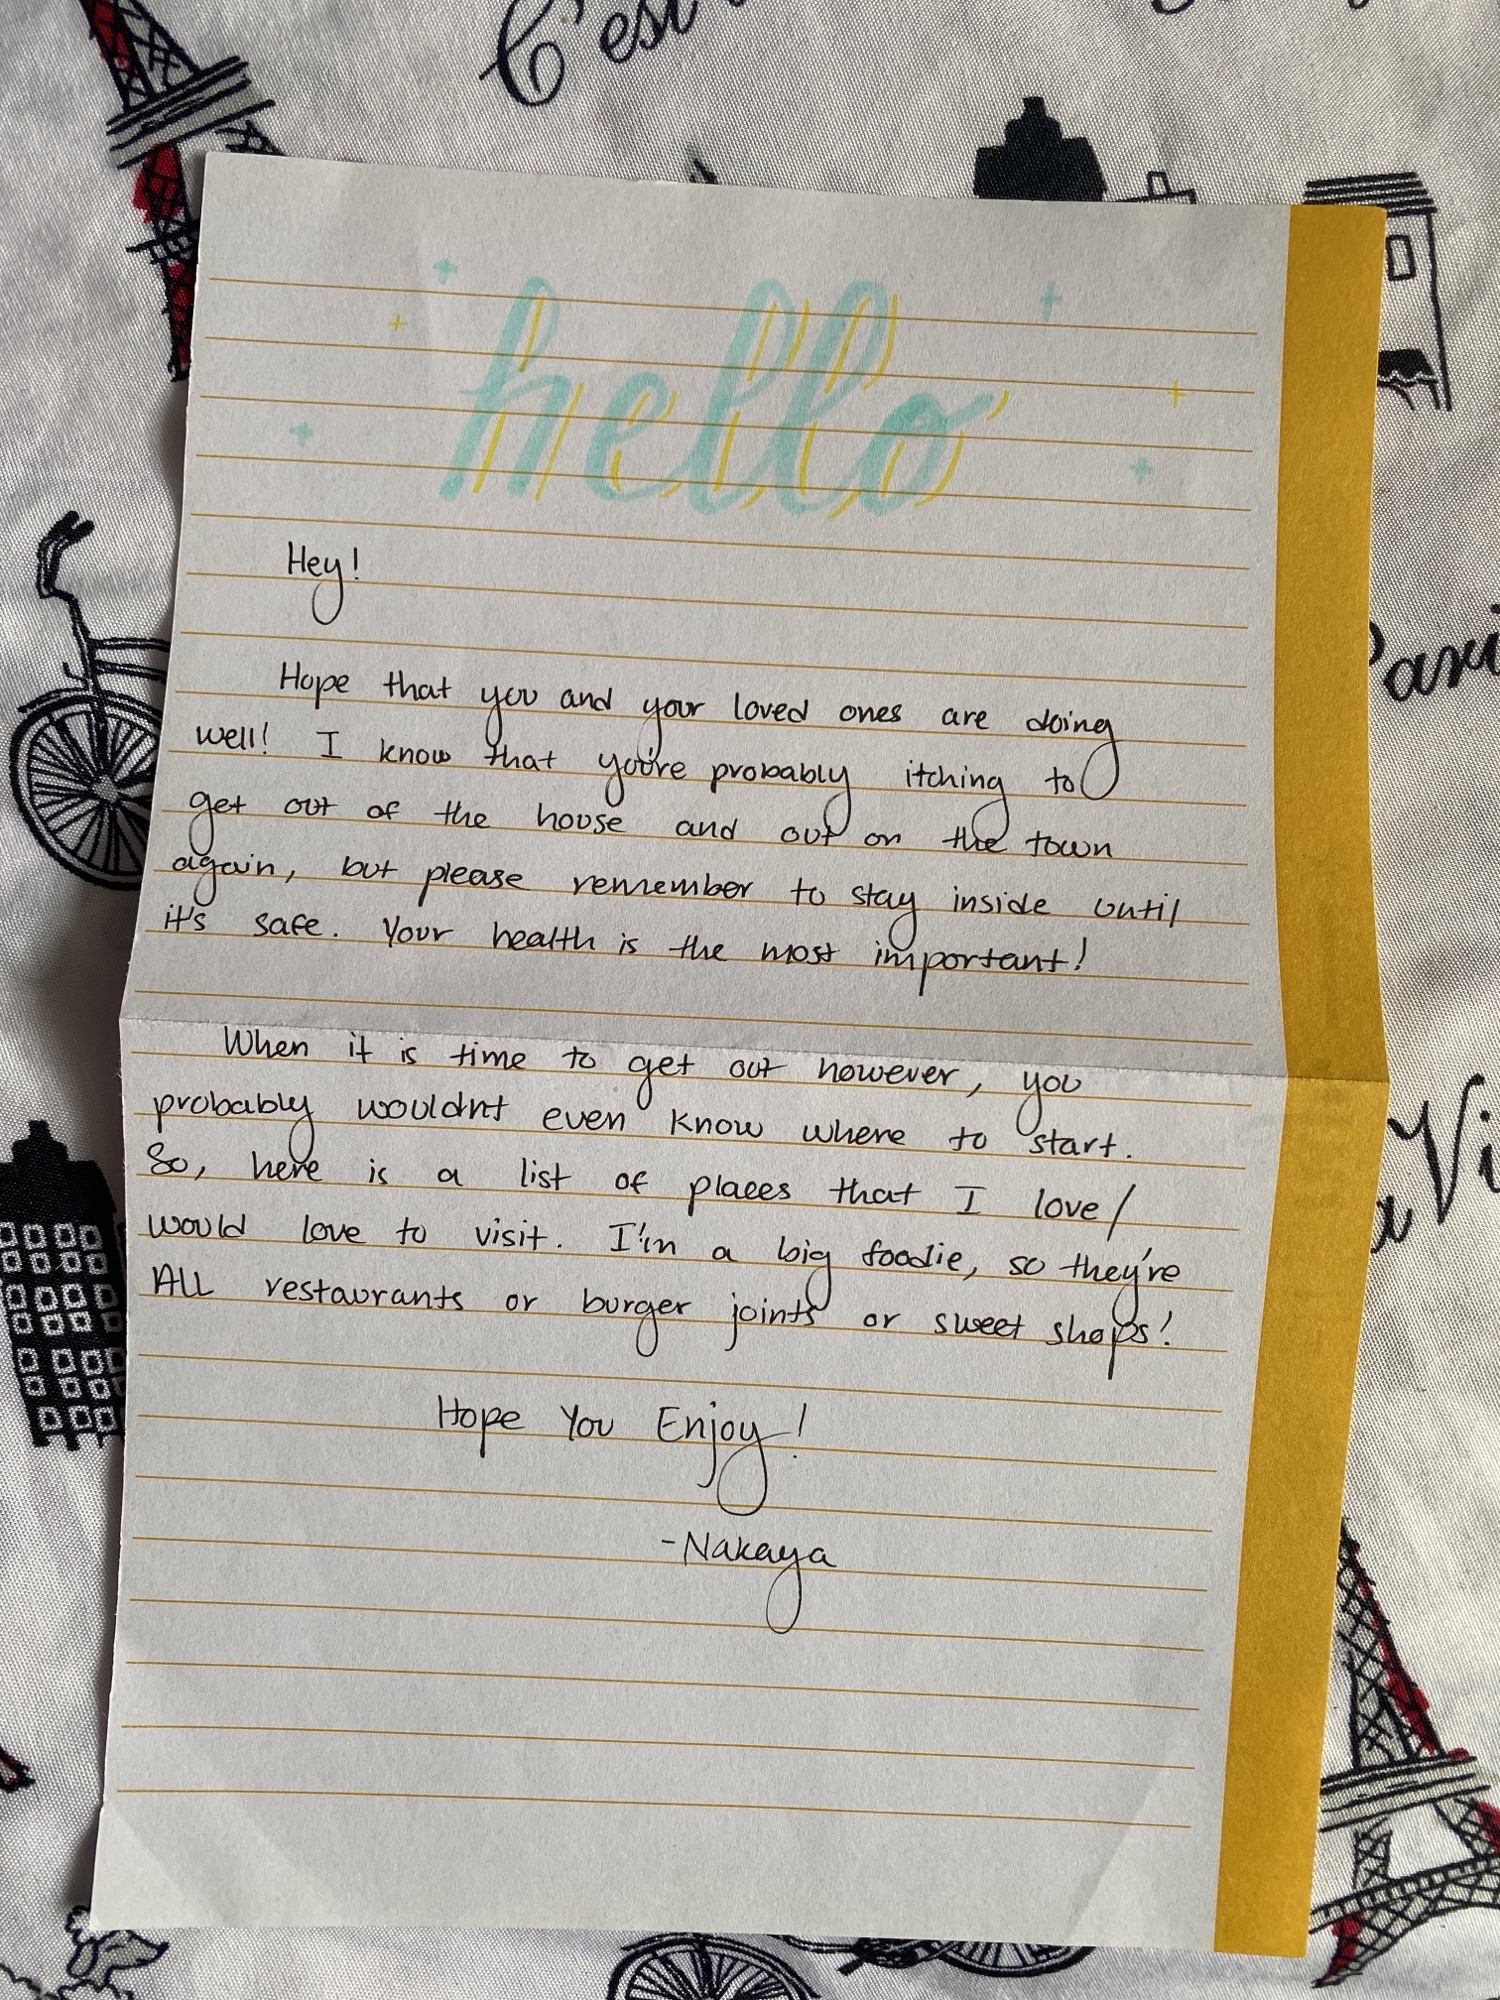 C'est
hello
Hey!
Hope that you and your loved ones are doing
well! I know that you're probably itching to
get out of the house and out on the town
again, but please remember to stay inside until
it's safe. Your health is the most important!
When it is time to get out however, you
probably wouldnt even know where to start.
So, here is a list of places that I love/
would love to visit. I'm a big foodie, so they're
ALL restaurants or burger joints or sweet shops!
Hope You Enjoy!
-Nakaya